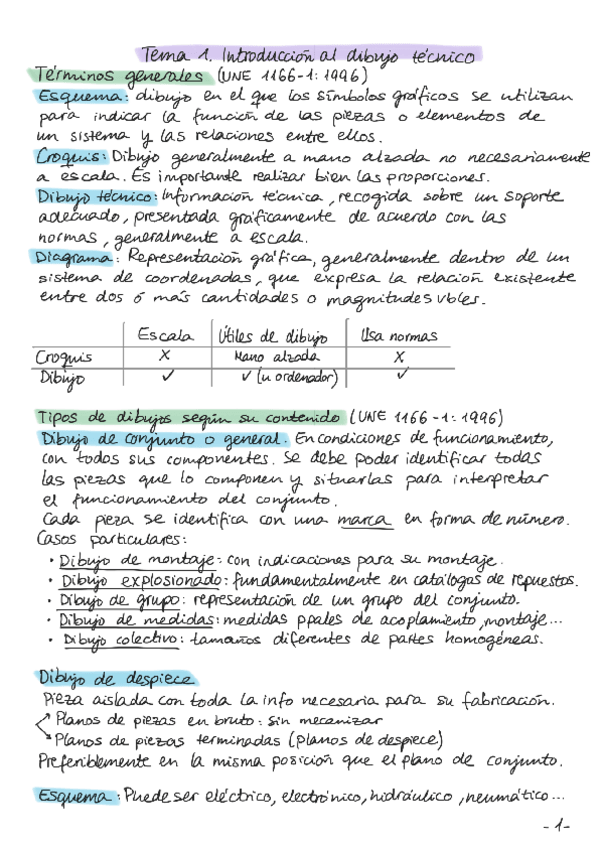 Tema 1. Introducción al dibujo técnico
Términos generales (UNE 1166-1:1996)
Esquema: dibujo en el que los símbolos gráficos se utilizan
para indicar la función de las piezas o elementos de
un sistema y las relaciones entre ellos.
Croquis: Dibujo generalmente a mano alzada no necesariamente
a escala. Es importante realizar bien las proporciones.
Dibujo técnico: Información técnica, recogida sobre un soporte
adecuado, presentada gráficamente de acuerdo con las
normas, generalmente a escala.
Diagrama: Representación gráfica, generalmente dentro de un
sistema de coordenadas, que expresa la relación existente
entre dos ó más cantidades o magnitudes vbles.
Escala Útiles de dibujo Usa normas
Croquis X Mano alzada X
Dibujo ✓ ✓ (u ordenador) ✓
Tipos de dibujos según su contenido (UNE 1166-1:1996)
Dibujo de conjunto o general. En condiciones de funcionamiento,
con todos sus componentes. Se debe poder identificar todas
las piezas que lo componen y situarlas para interpretar
el funcionamiento del conjunto.
Cada pieza se identifica con una marca en forma de número.
Casos particulares:
• Dibujo de montaje: con indicaciones para su montaje.
• Dibujo explosionado: fundamentalmente en catálogos de repuestos.
• Dibujo de grupo: representación de un grupo del conjunto.
• Dibujo de medidas: medidas ppales de acoplamiento, montaje...
• Dibujo colectivo: tamaños diferentes de partes homogéneas.
Dibujo de despiece
Pieza aislada con toda la info necesaria para su fabricación.
Planos de piezas en bruto: sin mecanizar
Planos de piezas terminadas (planos de despiece)
Preferiblemente en la misma posición que el plano de conjunto.
Esquema: Puede ser eléctrico, electrónico, hidráulico, neumático...
-1-